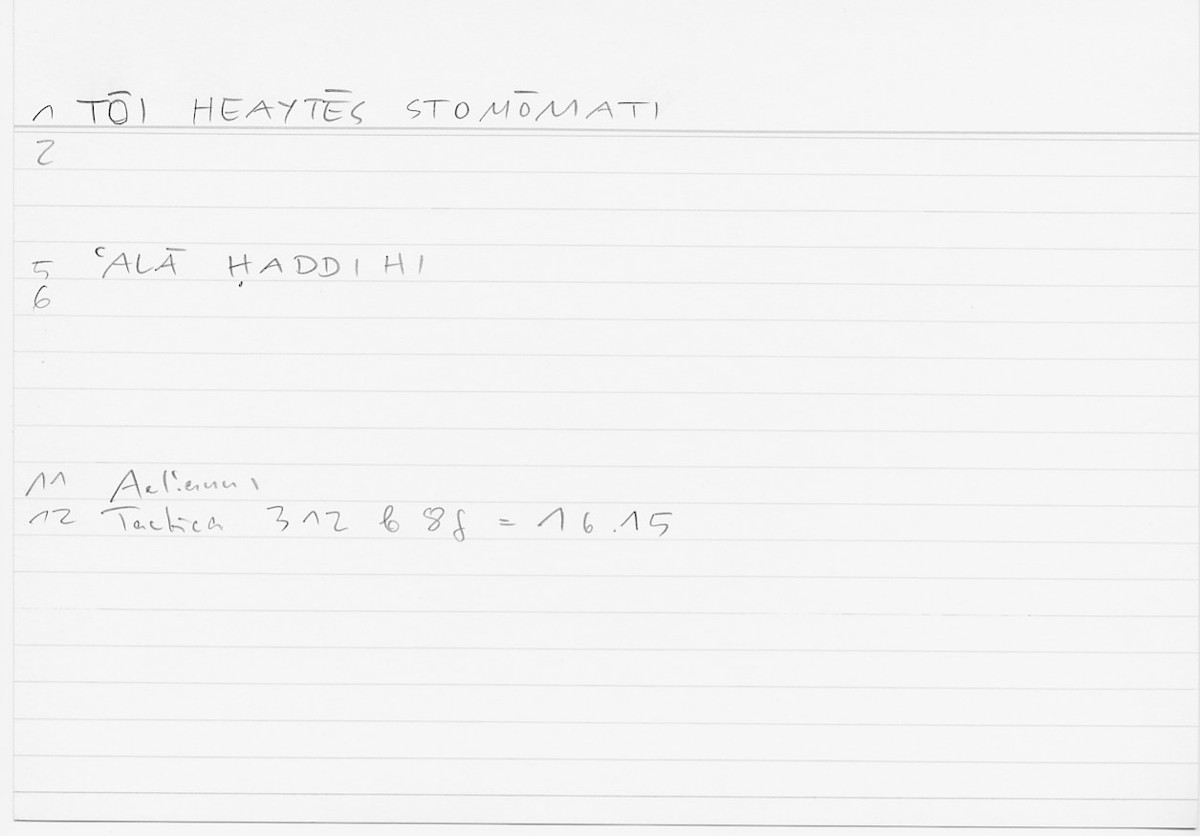 1 TŌI HEAYTĒS STOMŌMATI
2
5 ʿALĀ ḤADDIHI
6
11 Aelianus
12 Tactica 312 b 8f = 16.15